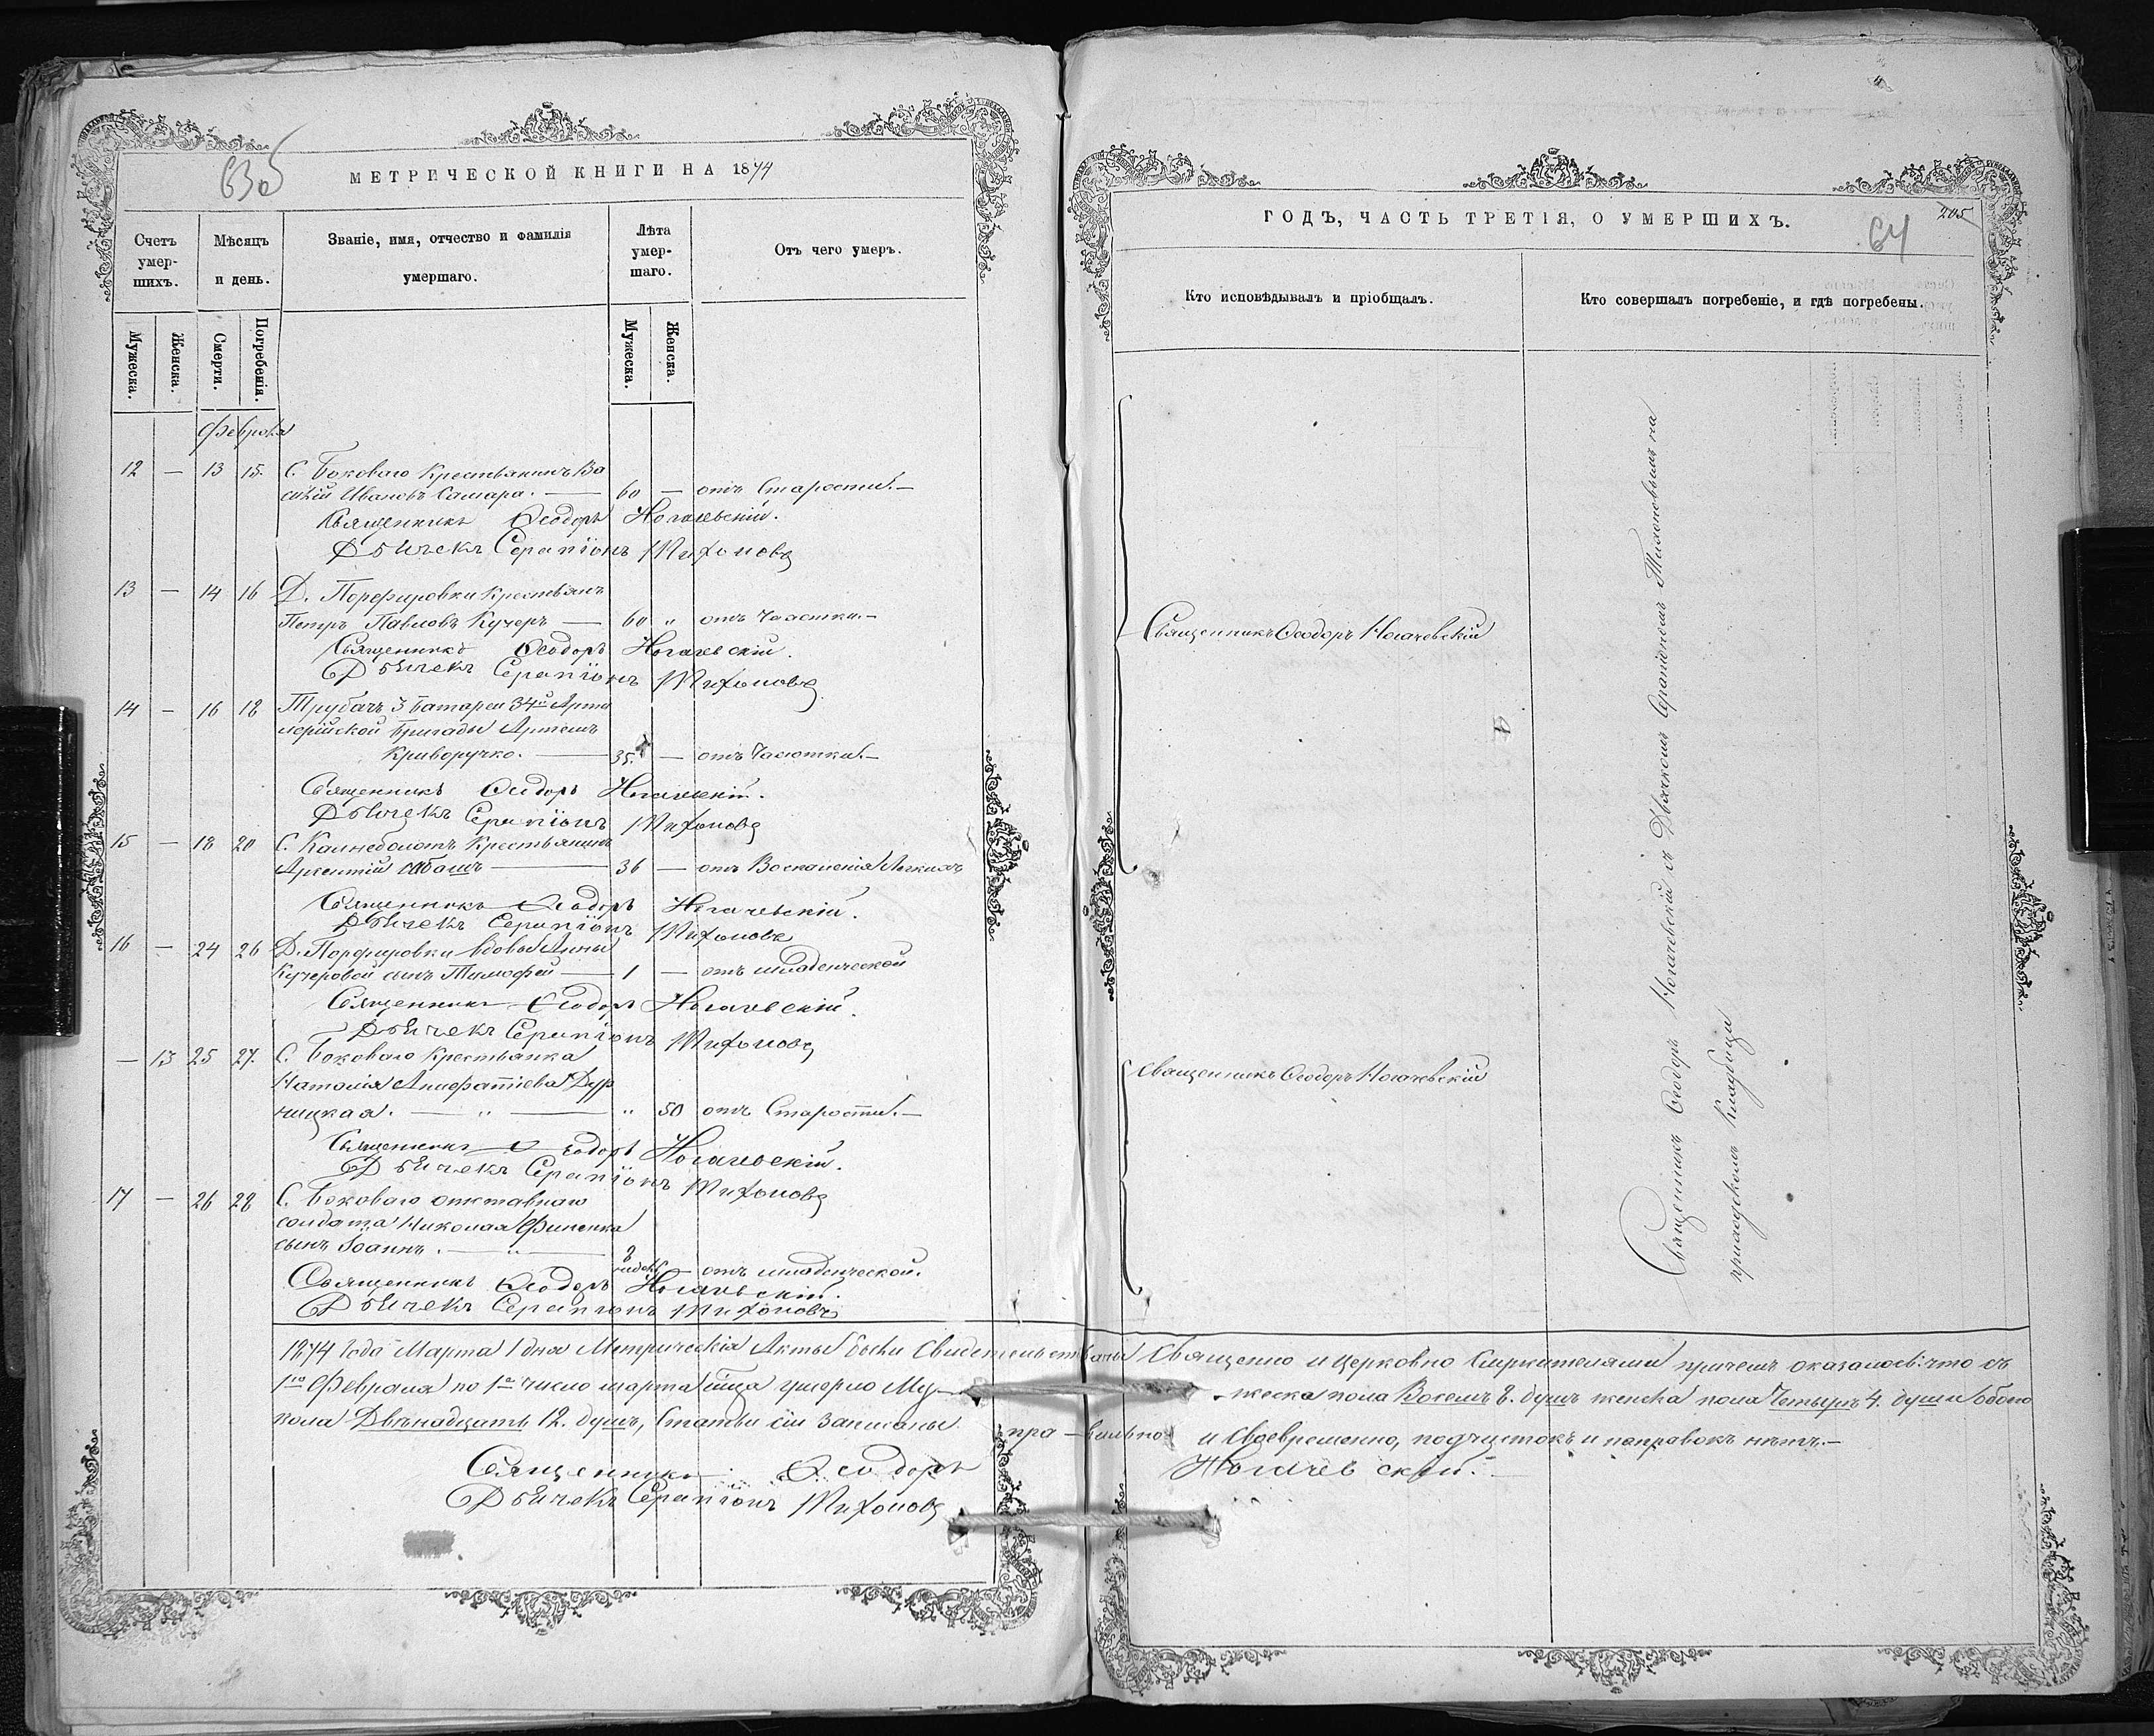 63об
МЕТРИЧЕСКОЙ КНИГИ НА 1874
Счетъ умер-шихъ.
Мѣсяцъ и день.
Званіе, имя, отчество и фамилія умершаго.
Лѣта умер-шаго.
Отъ чего умеръ.
Мужеска.
Женска.
Смерти.
Погребенія.
Мужеска.
Женска.
Февраля
12 — 13 15. С. Боковаго Крестьянинъ Ва
силій Ивановъ Самара. — 60 — отъ Старости. —
Священникъ Ѳеодоръ Ногачевскій.
Дьячекъ Серапіонъ Тихоновъ
13 — 14 16 Д. Порфировки Крестьян
Петръ Павловъ Кучеръ — 60 " отъ Чахотки. —
Священникъ Ѳеодоръ Ногачевскій.
Дьячекъ Серапіонъ Тихоновъ
14 — 16 18 Трубачъ 3 батареи 34й Арти
лерійской бригады Артемъ
Криворучко. — 35. — отъ Чахотки. —
Священникъ Ѳеодоръ Ногачевскій.
Дьячекъ Серапіонъ Тихоновъ
15 — 18 20 С. Крестьянинъ
36 — отъ Воспаленія Легкихъ
Священникъ Ѳеодоръ Ногачевскій.
Дьячекъ Серапіонъ Тихоновъ
16 — 24 26 Д. Порфировки вдовы Анны
Кучеровой сынъ Тимофей — 1 — отъ младенческой
Священникъ Ѳеодоръ Ногачевскій.
Дьячекъ Серапіонъ Тихоновъ
— 13 25 27. С. Боковаго Крестьянка
Наталія
ницкая. — " — " 50 отъ Старости. —
Священникъ Ѳеодоръ Ногачевскій.
Дьячекъ Серапіонъ Тихоновъ
17 — 26 28 С. Боковаго отставнаго
солдата Николая Финенка
сынъ Іоаннъ. — " — 2
недѣл — отъ младенческой.
Священникъ Ѳеодоръ Ногачевскій.
Дьячекъ Серапіонъ Тихоновъ
ГОДЪ, ЧАСТЬ ТРЕТІЯ, О УМЕРШИХЪ.
205
64
Кто исповѣдывалъ и пріобщалъ.
Кто совершалъ погребеніе, и гдѣ погребены.
Священникъ Ѳеодоръ Ногачевскій
Священникъ Ѳеодоръ Ногачевскій
Священникъ Ѳеодоръ Ногачевскій съ Дьячкомъ Серапіономъ Тихоновымъ на
приходскомъ Кладбищи
1874 года Марта 1 дня Метрическія Акты были Свидетельствованы Священно и церковно Служителями причемъ оказалось: что съ
1го Февраля по 1е число марта м-ца умерло Му- жеска пола Восемь 8. душъ женска пола Четыре 4. души обоего
пола Двѣнадцать 12. душъ, Статьи сіи записаны пра-вильно и своевременно, подчистокъ и поправокъ нѣтъ. —
Священникъ Ѳеодоръ Ногачевскій.
Дьячекъ Серапіонъ Тихоновъ